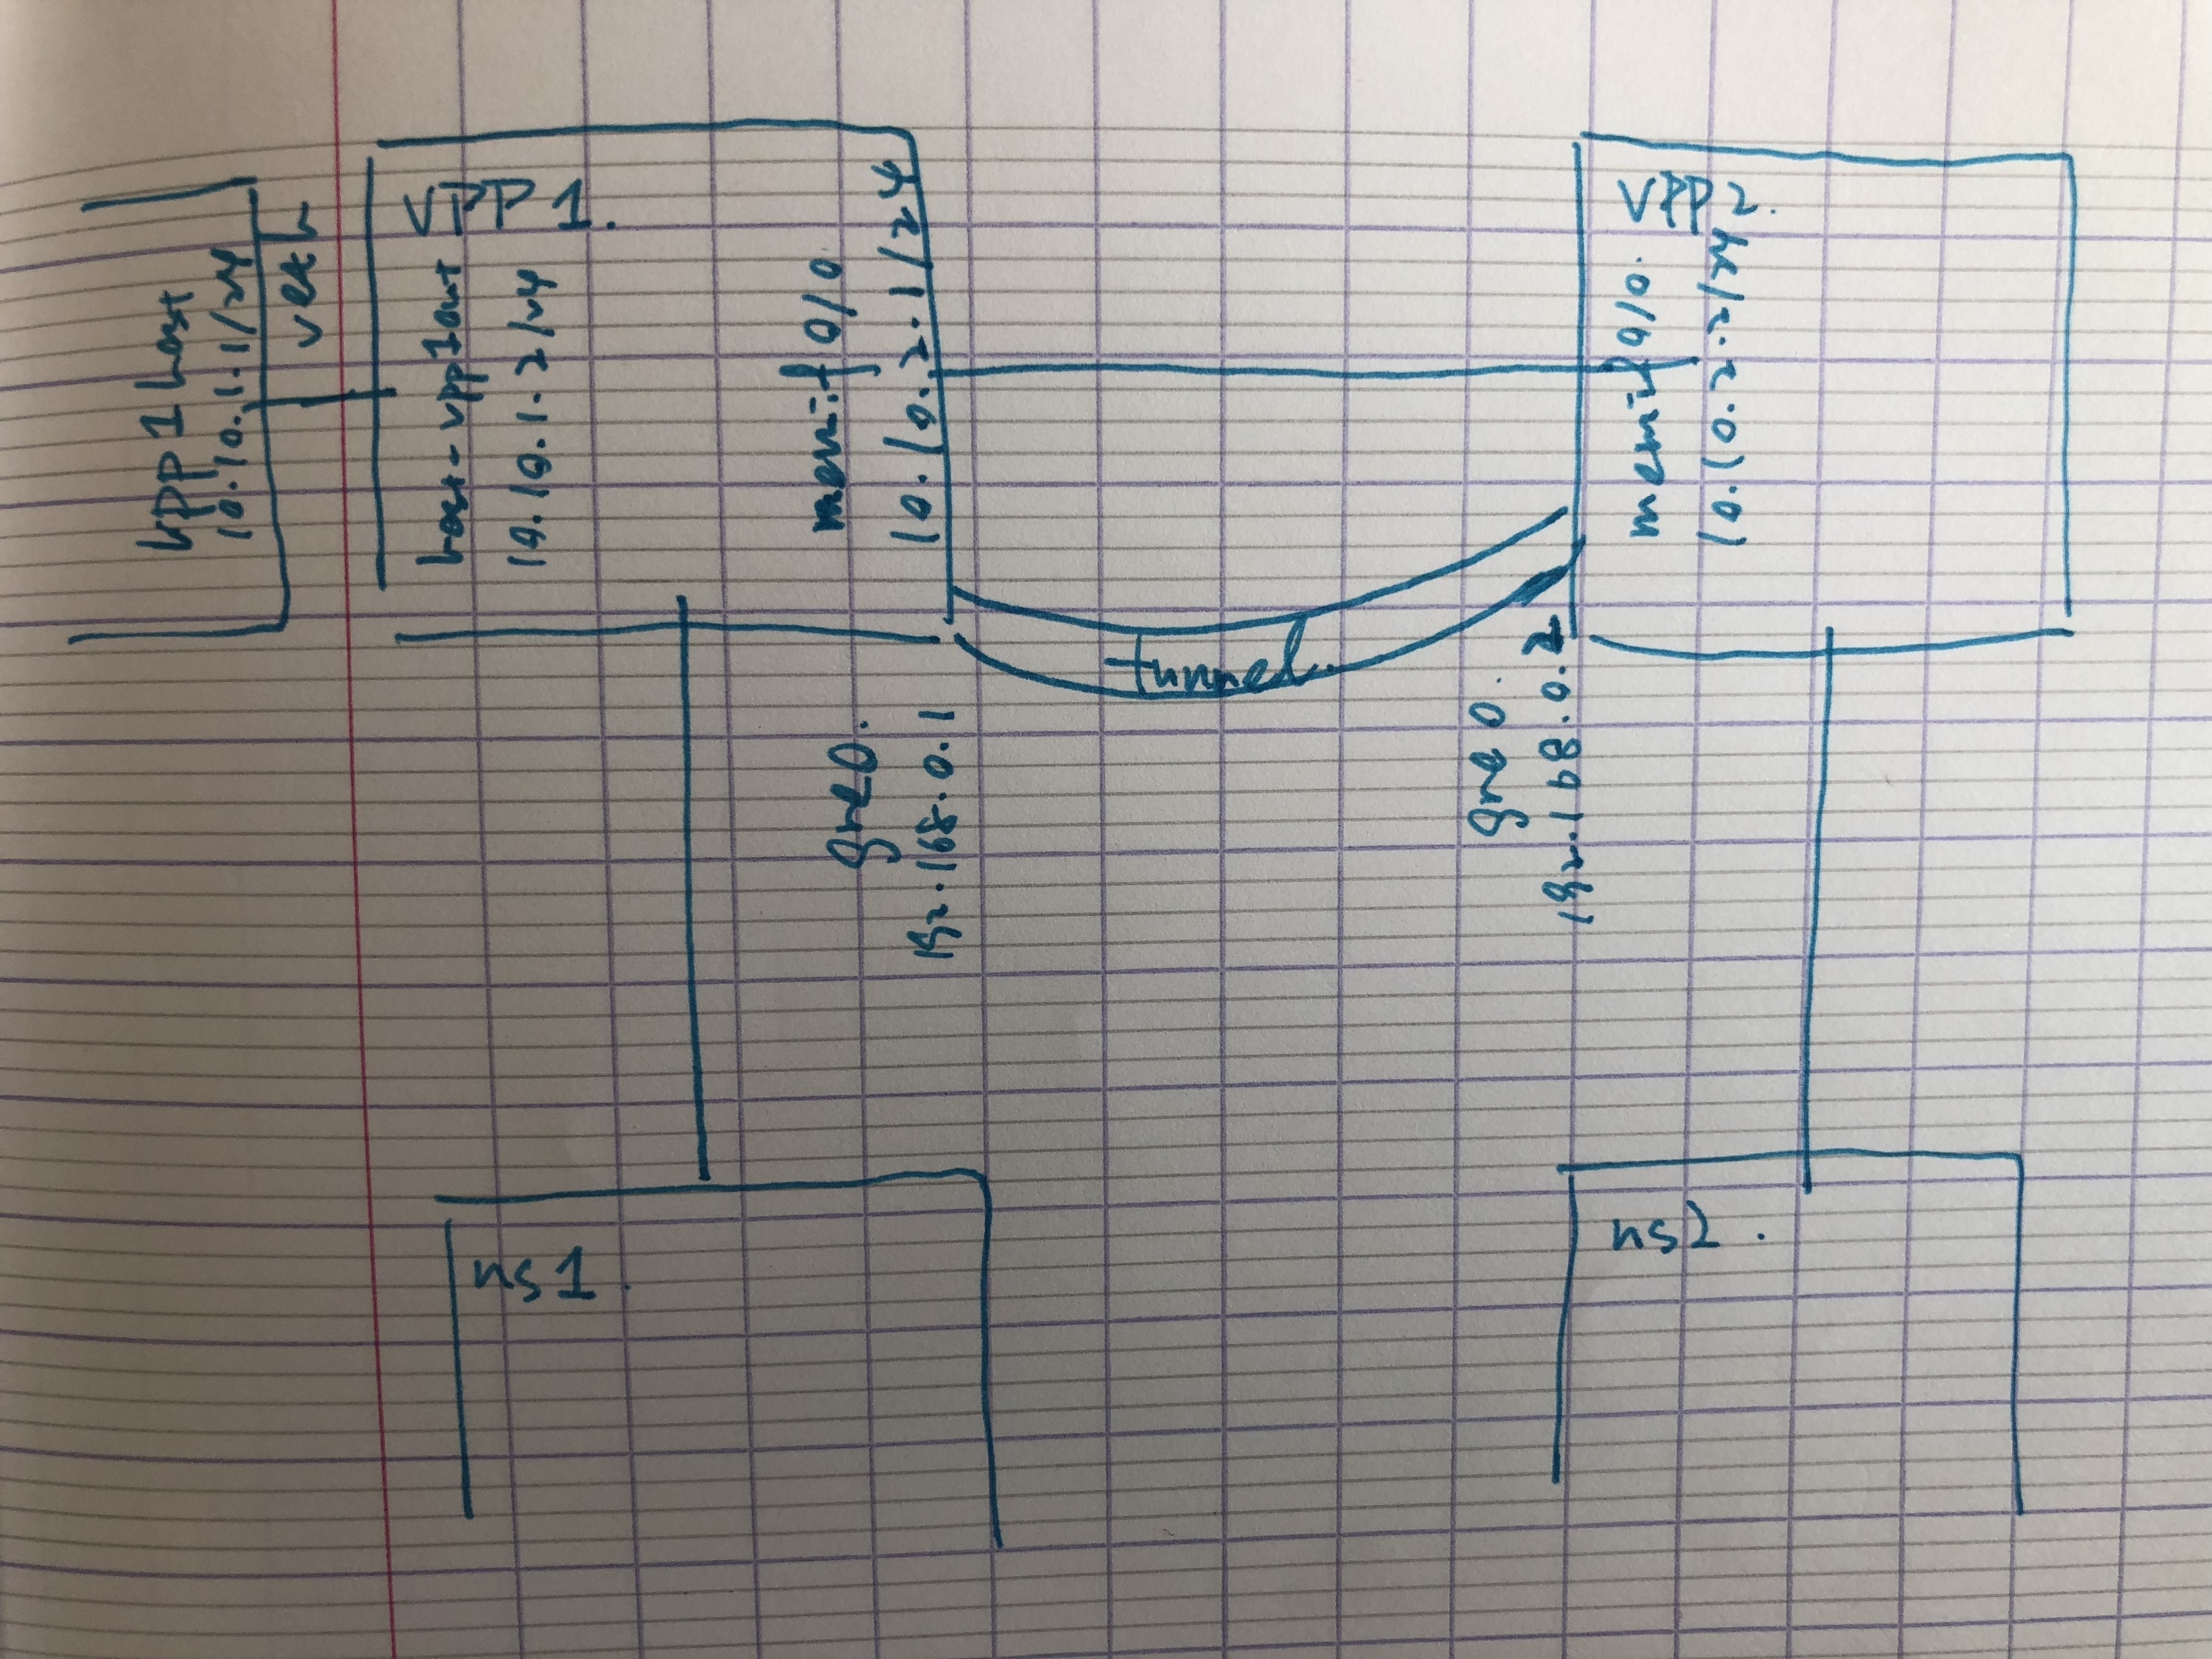 VPP 1 host
10.10.1.1/24
veth
VPP 1.
host-vpp1out
10.10.1.2/24
memif0/0
10.10.2.1/24
VPP2.
memif0/0.
10.10.2.2/24
tunnel.
gre0.
192.168.0.1
gre0.
192.168.0.2
ns1.
ns2.